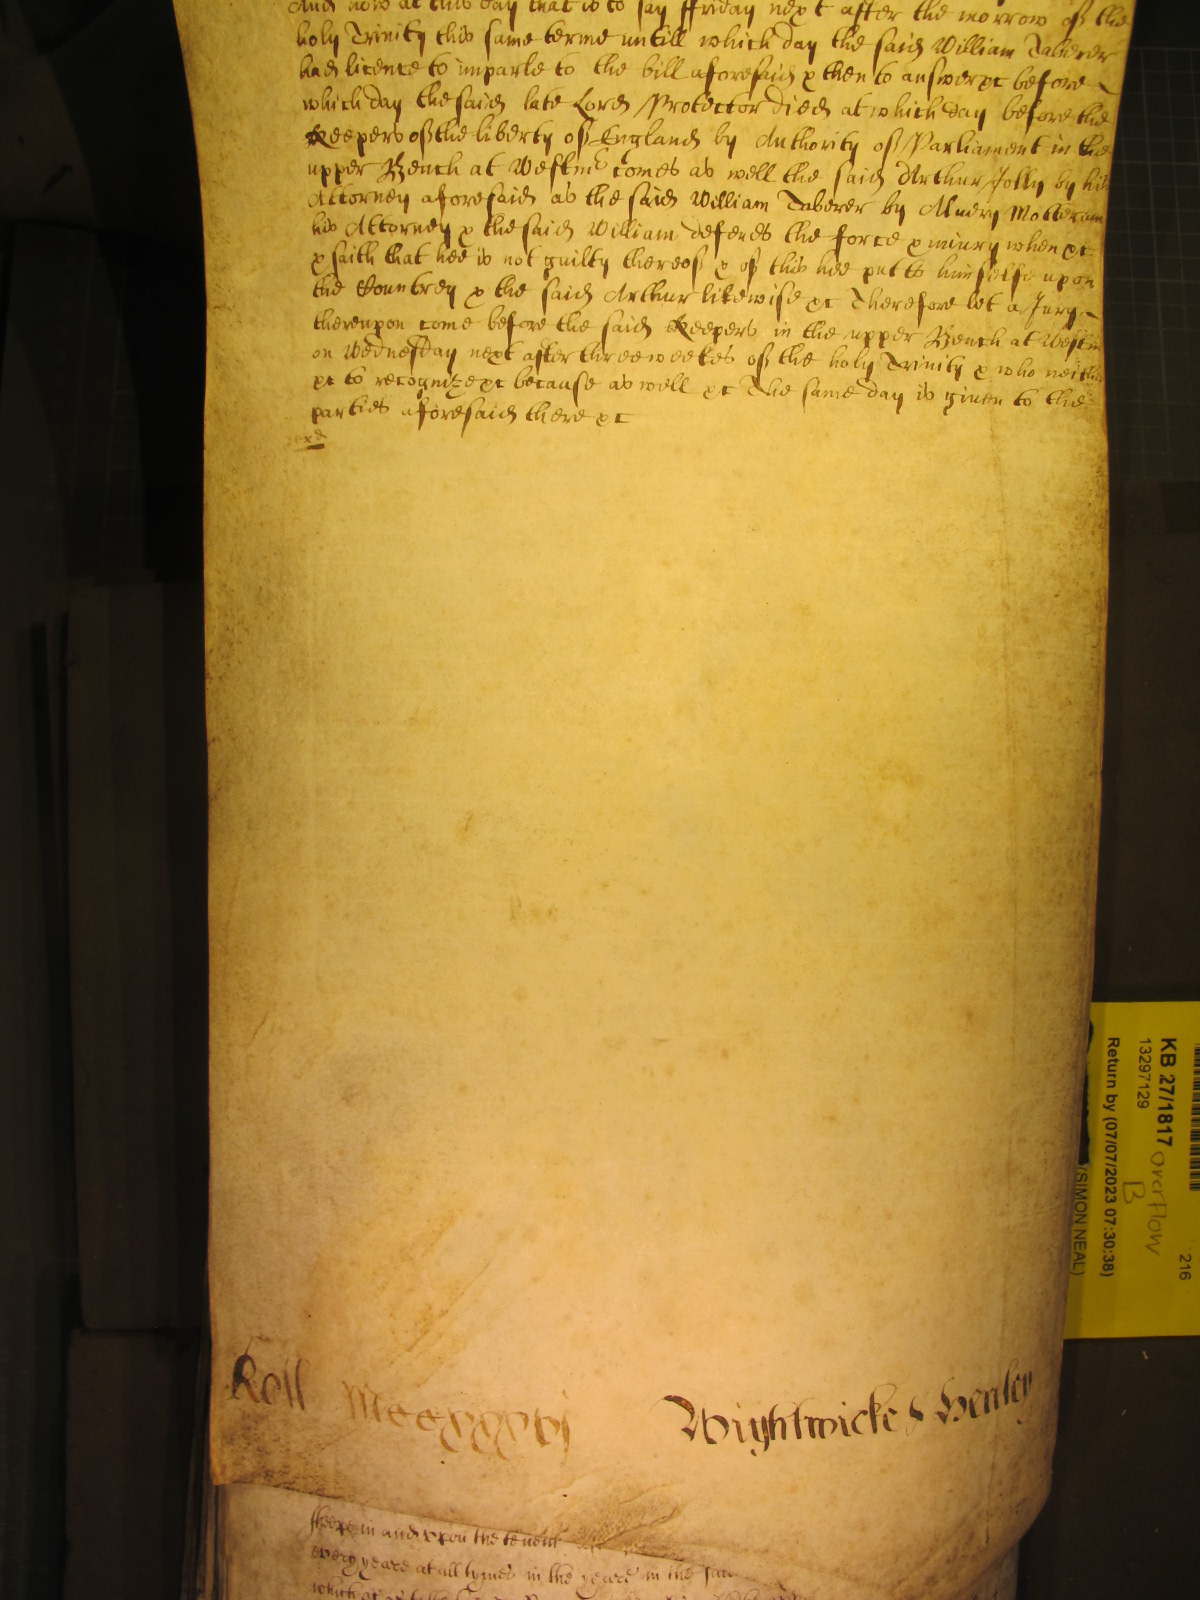 And now at this day that is to say ffriday next after the morrow of the
holy Trinity this same terme untill which day the said William Taberer
had licence to imparle to the bill aforesaid & then to answer &c before
which day the said late Lord Protector died at which day before the
Keepers of the liberty of England by Authority of Parliament in the
upper Bench at Westmr comes as well the said Arthur Jolly by his
Attorney aforesaid as the said William Taberer by Mottram
his Attorney & the said William defends the force & iniury when &c
& saith that hee is not guilty thereof & of this hee putts himselfe upon
the Countrey & the said Arthur likewise &c Therefore let a Jury
thereupon come before the said Keepers in the upper Bench at Westm
on Wednesday next after three weekes of the holy Trinity & who neither
&c to recognize &c because as well &c The same day is given to the
parties aforesaid there &c
Roll Mccxxxvj Wightwicke & Henley
keepe in and upon the tenemt
every yeare at all tymes in the yeare in the said
KB 27/1817 overflow
B
216
13297129
Return by (07/07/2023 07:30:38)
(SIMON NEAL)